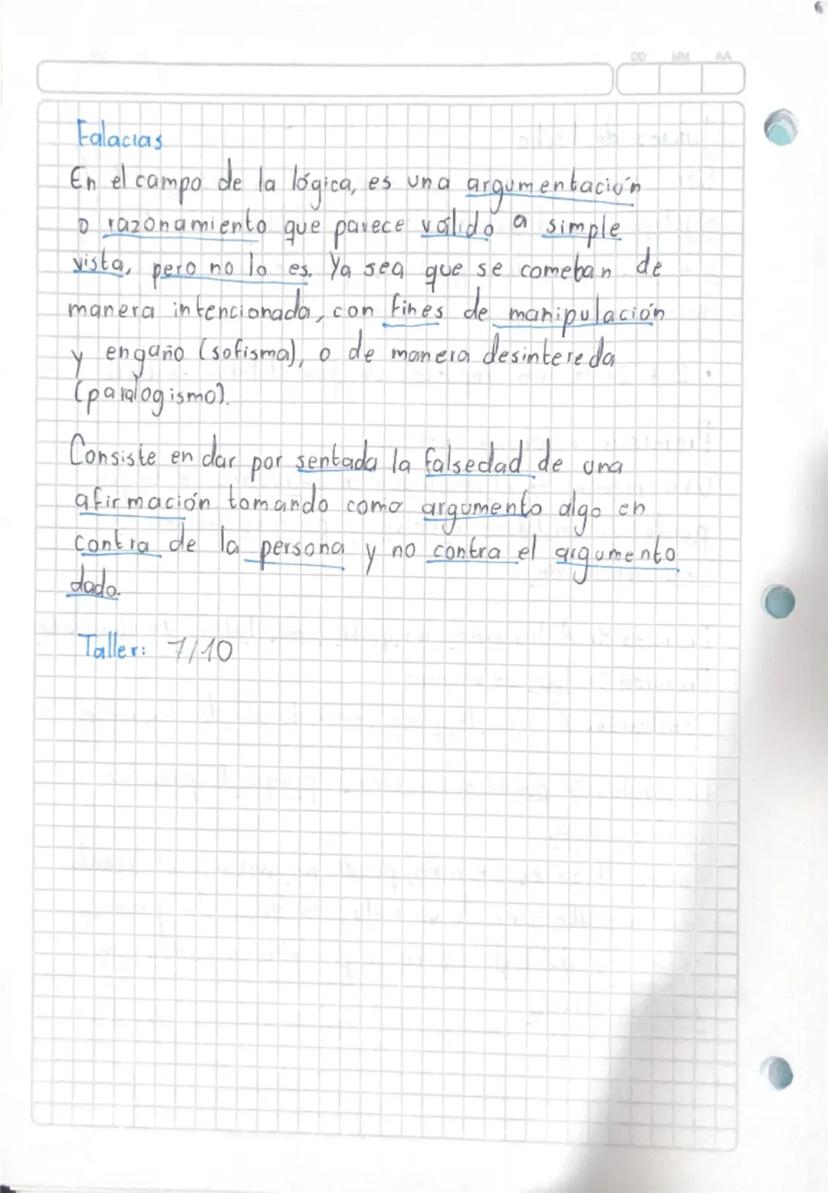 DD MM AA
Falacias
En el campo de la lógica, es una argumentación
o razonamiento que parece válido a simple
vista, pero no lo es. Ya sea que se cometan de
manera intencionada, con fines de manipulación
y engaño (sofisma), o de manera desintereda
(paralogismo).
Consiste en dar por sentada la falsedad de una
afirmación tomando como argumento algo en
contra de la persona y no contra el argumento
dado.
Taller: 7/10